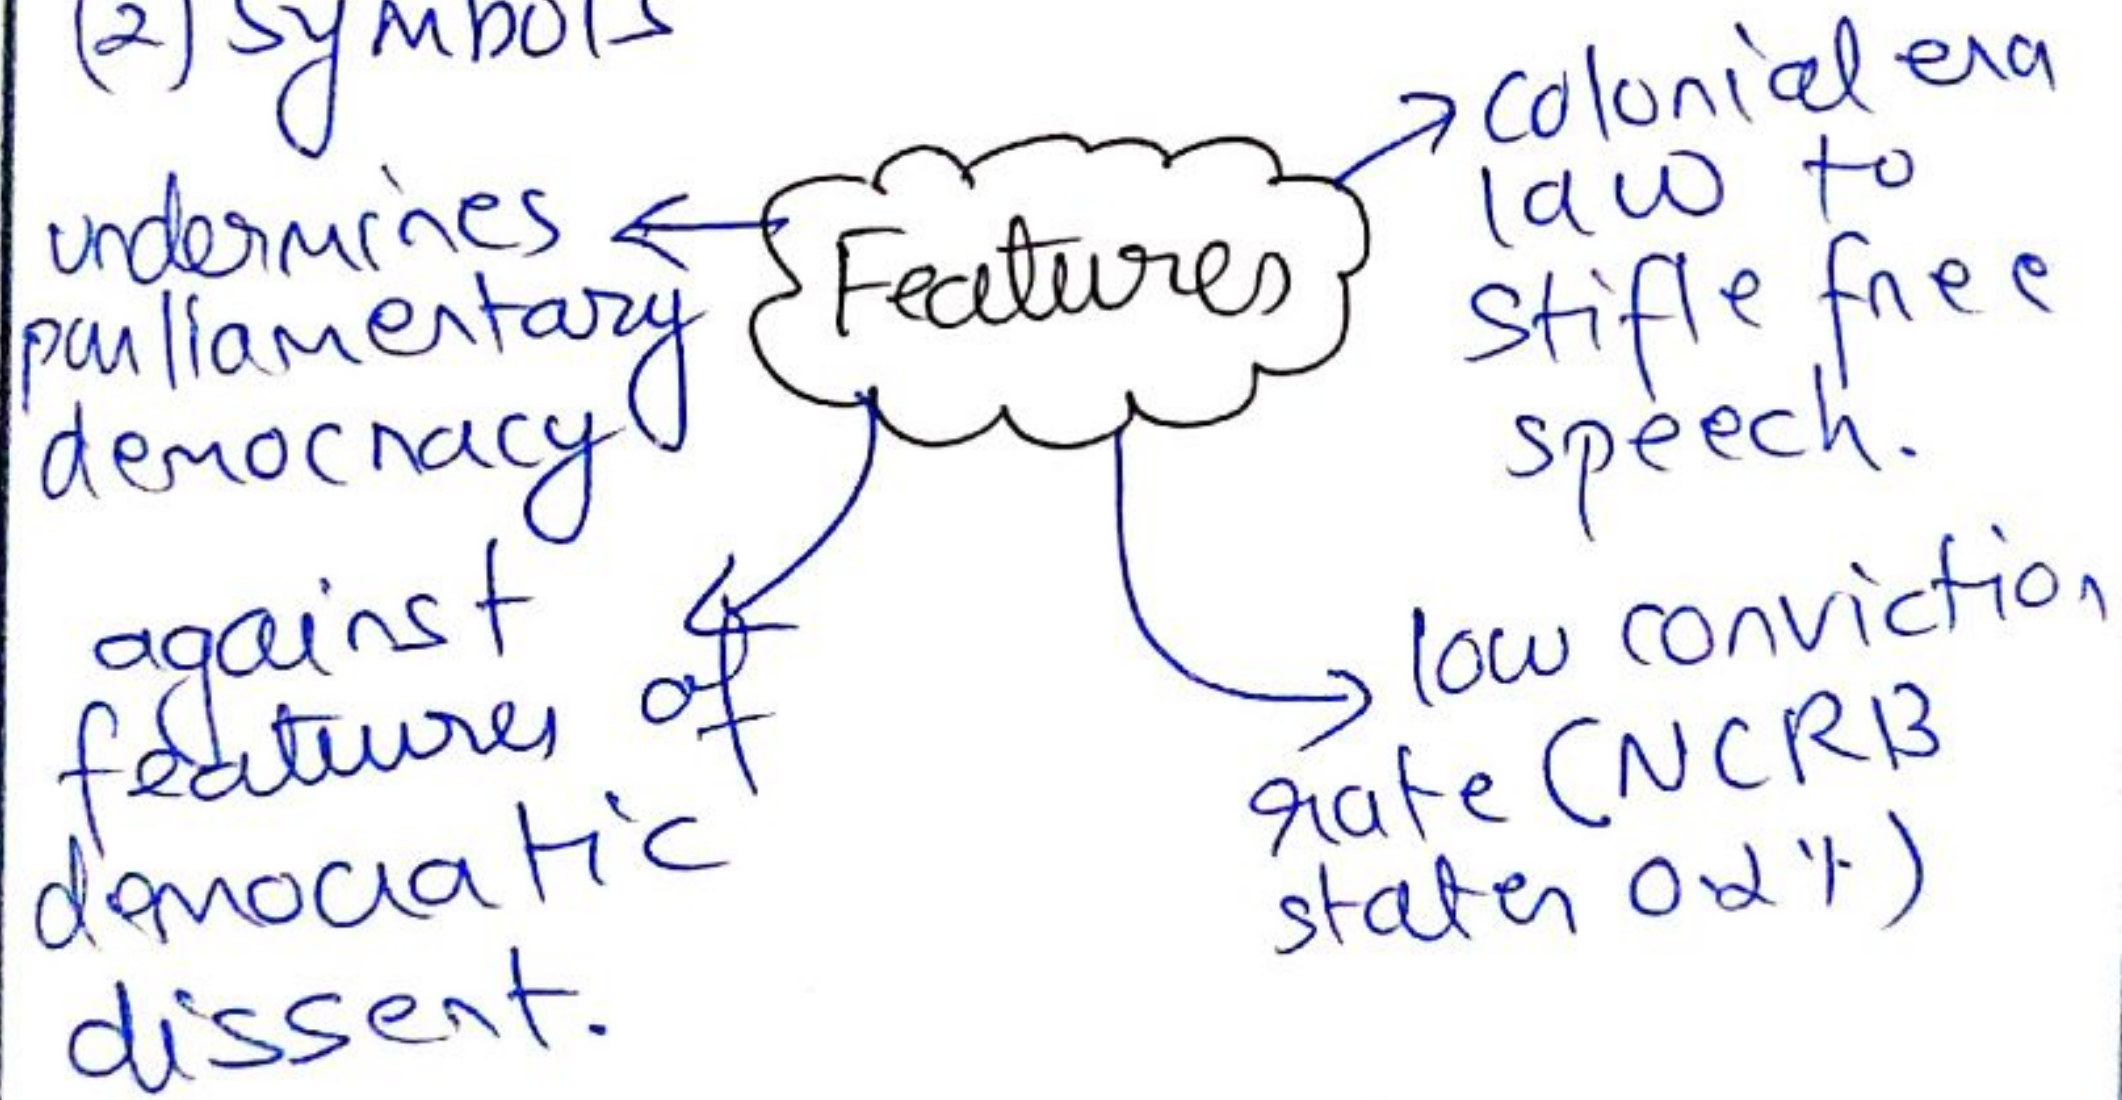 (2) symbols
undermines
parliamentary
democracy
Features
colonial era
law to
stifle free
speech.
against
features of
democratic
dissent.
low conviction
rate (NCRB
states 0.2%)